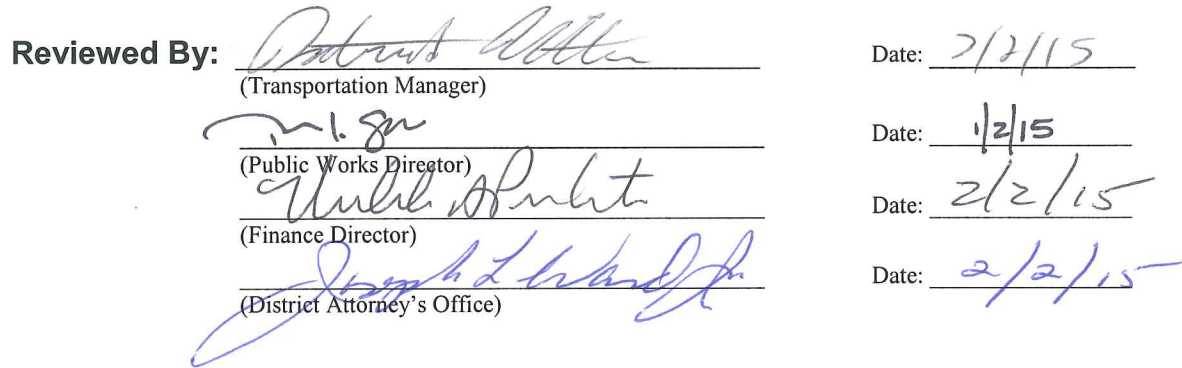 Reviewed By: Date: 2/2/15
(Transportation Manager)
Date: 1/2/15
(Public Works Director)
Date: 2/2/15
(Finance Director)
Joseph L Ward Jr Date: 2/2/15
(District Attorney's Office)